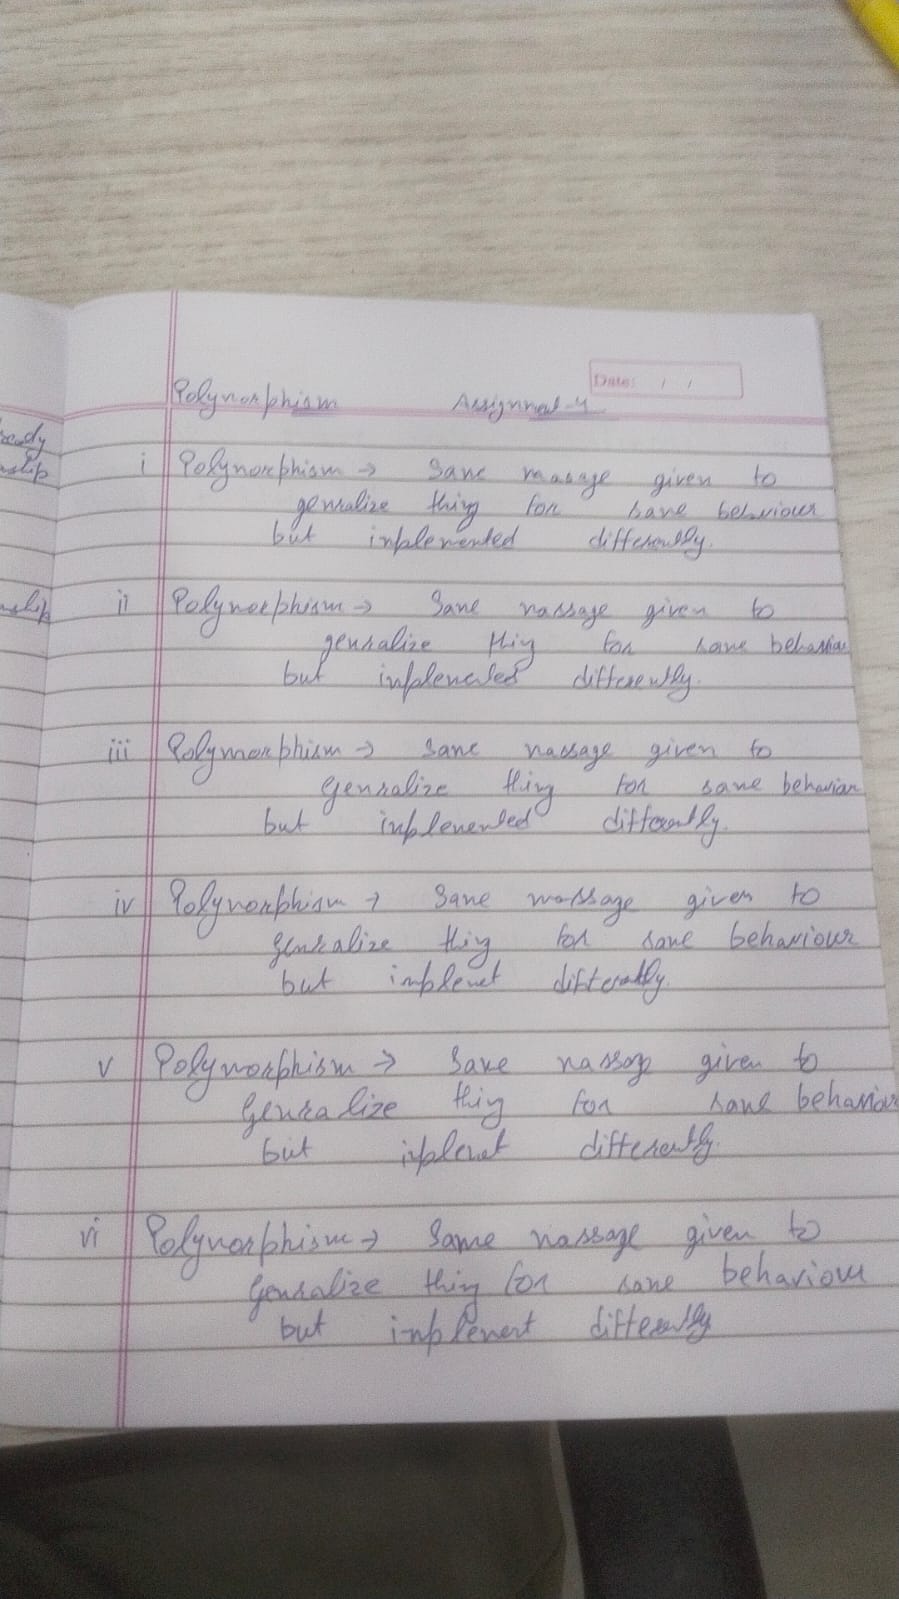 Date: / /
Polymorphism Assignment-4
ready
nslip
i Polymorphism → Same massage given to
genralize thing for same behaviour
but implemented differently.
nslip
ii Polymorphism → Same massage given to
genralize thing for same behaviour
but implemented differently.
iii Polymorphism → Same massage given to
Genralize thing for same behaviour
but implemented differently.
iv Polymorphism → Same massage given to
genralize thing for same behaviour
but implement differently.
v Polymorphism → Same massage given to
Genralize thing for same behaviour
but implement differently.
vi Polymorphism → Same massage given to
Genralize thing for same behaviour
but implement differently